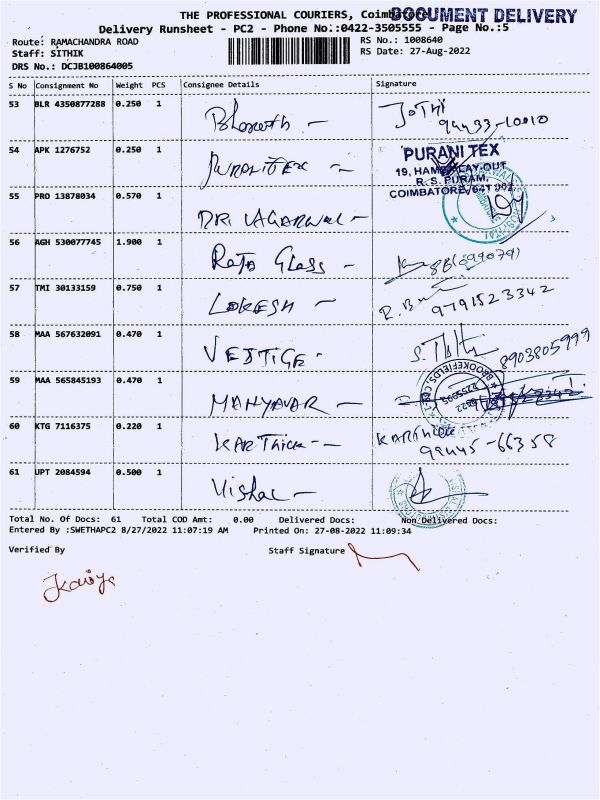 THE PROFESSIONAL COURIERS, Coimbatore
DOCUMENT DELIVERY
Delivery Runsheet - PC2 - Phone No.:0422-3505555 - Page No.:5
Route: RAMACHANDRA ROAD RS No.: 1008640
Staff: SITHIK RS Date: 27-Aug-2022
DRS No.: DCJB100864005
S No Consignment No Weight PCS Consignee Details Signature
53 BLR 4350877288 0.250 1 Bharath - JoTHi
94433-10010
54 APK 1276752 0.250 1 PURANITEX -
PURANI TEX
R. S. PURAM,
COIMBATORE
55 PRO 13878034 0.570 1 DR. AGARWAL -
56 AGH 530077745 1.900 1 Raja Glass -
57 TMI 30133159 0.750 1 LOKESH - 9791523342
58 MAA 567632091 0.470 1 VESTIGE - 8903805999
59 MAA 565845193 0.470 1 MANYAVAR -
BROOKEFIELDS
60 KTG 7116375 0.220 1 KARThick - KARTHICK
94445-66358
61 UPT 2084594 0.500 1 Vishal -
Total No. Of Docs: 61 Total COD Amt: 0.00 Delivered Docs: Non Delivered Docs:
Entered By :SWETHAPC2 8/27/2022 11:07:19 AM Printed On: 27-08-2022 11:09:34
Verified By Staff Signature